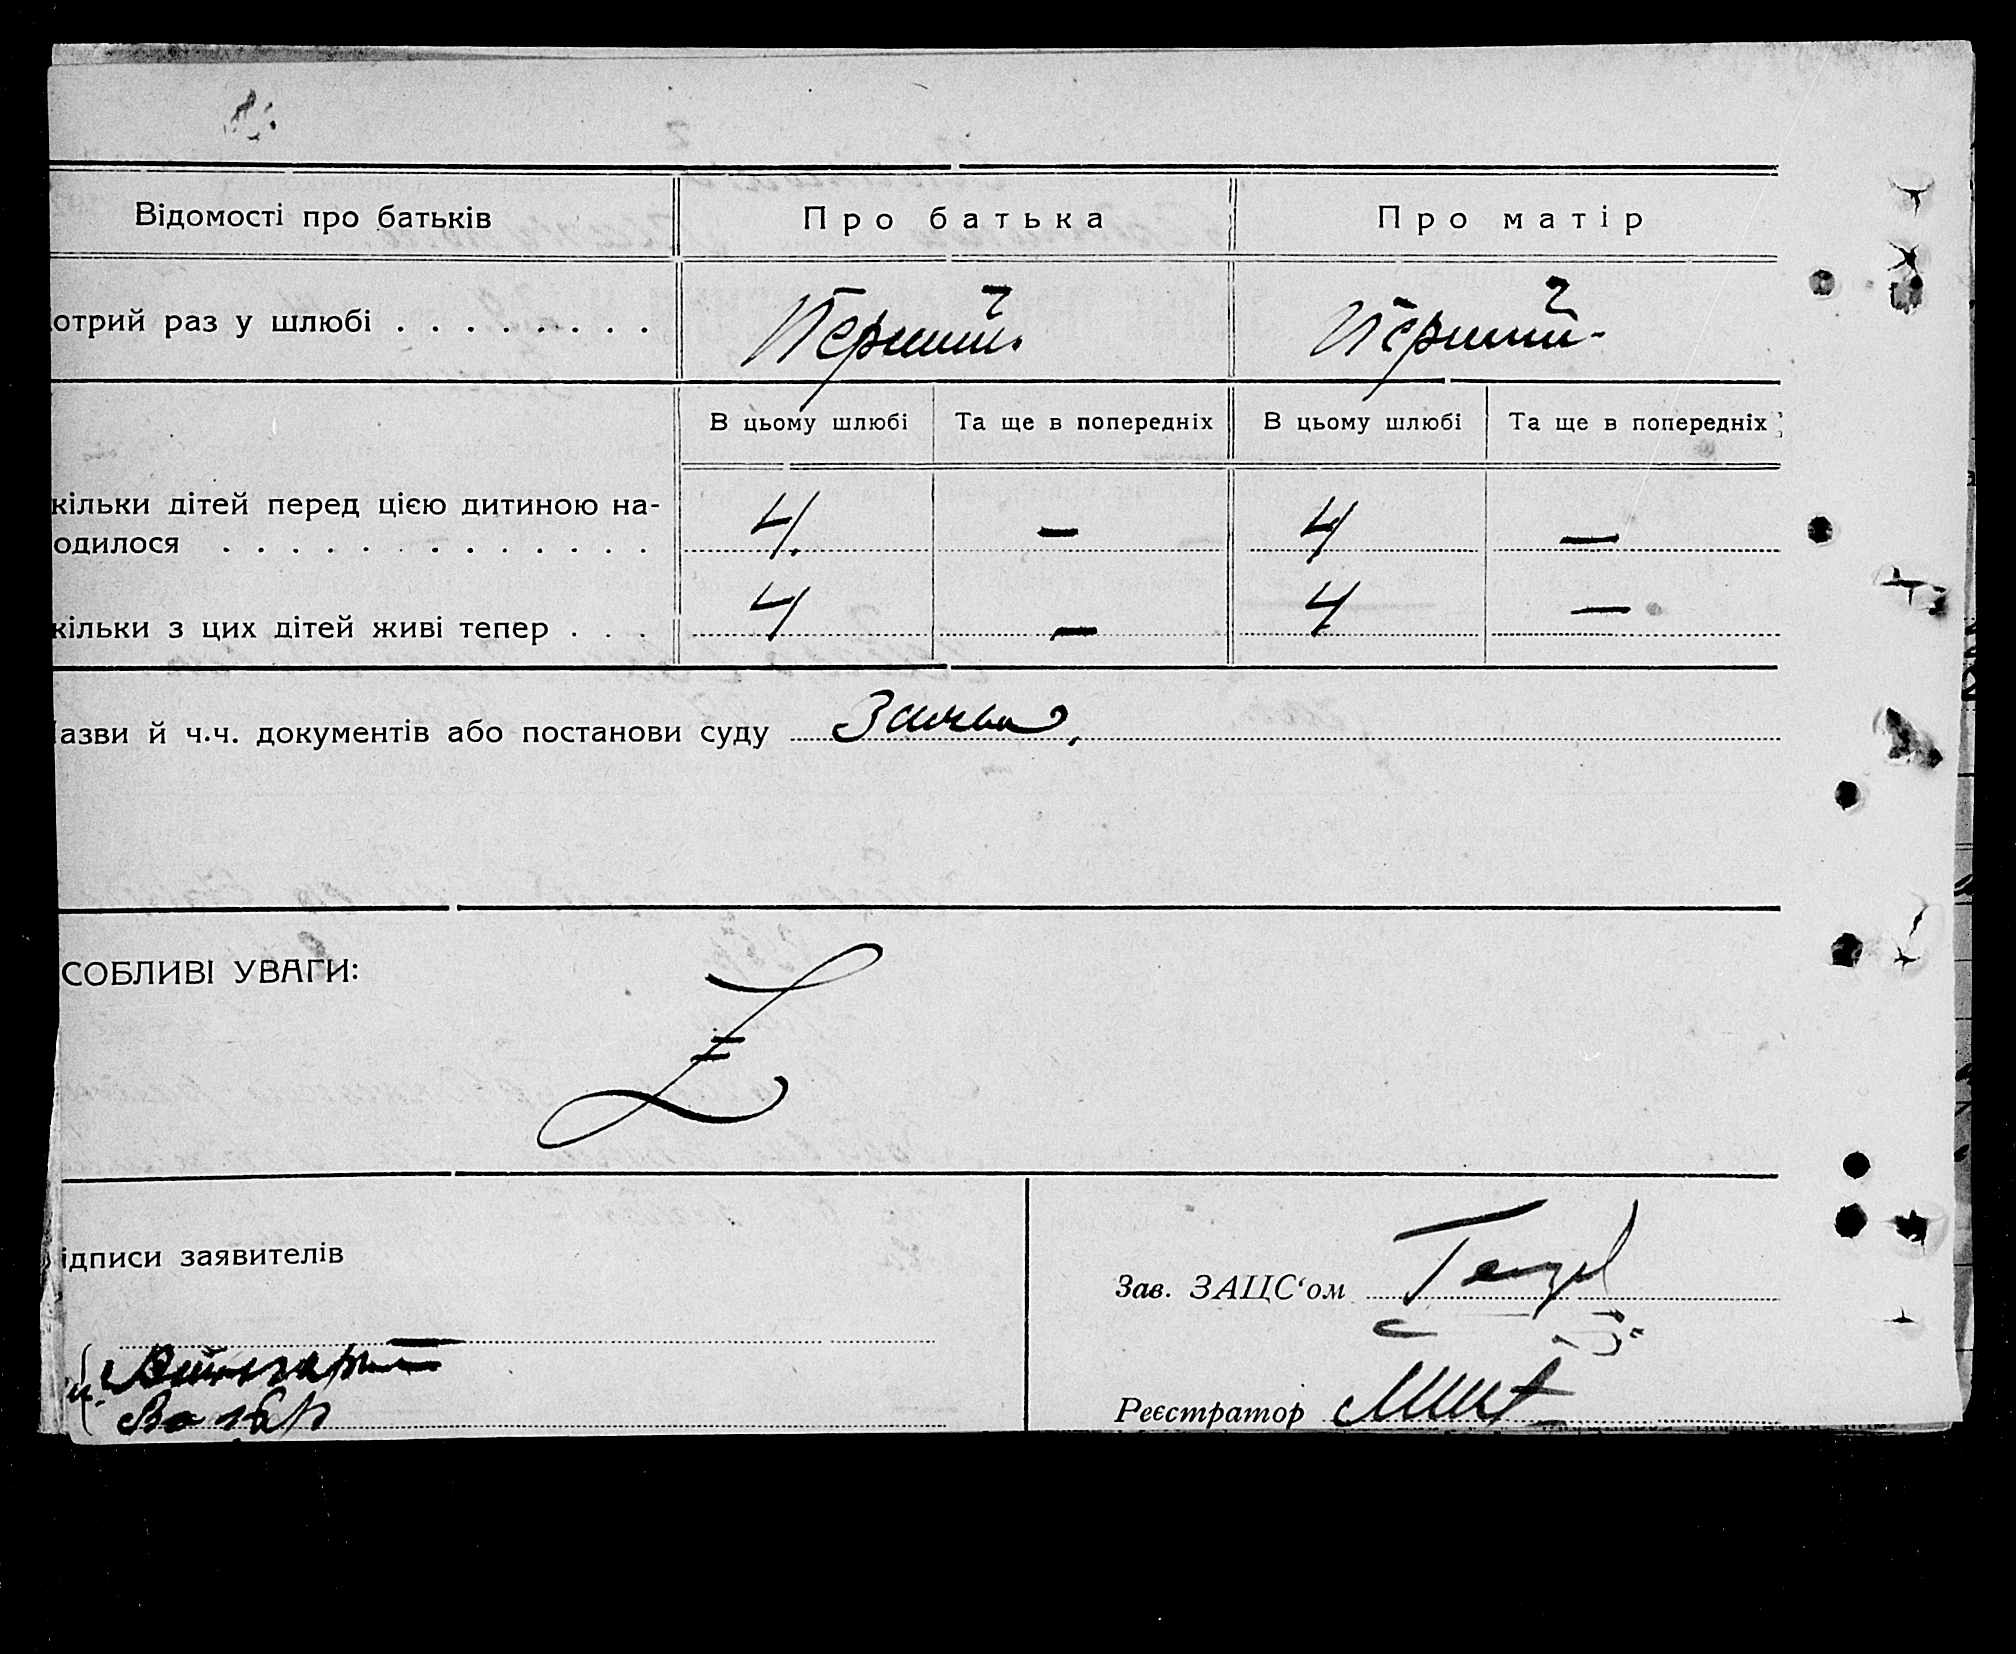 Відомості про батьків Про батька Про матір
отрий раз у шлюбі . . . . . . . . Перший. Перший -
В цьому шлюбі Та ще в попередніх В цьому шлюбі Та ще в попередніх
кільки дітей перед цією дитиною на-
одилося . . . . . . . . . . . . . 4. — 4 —
кільки з цих дітей живі тепер . . . 4 — 4 —
азви й ч.ч. документів або постанови суду
СОБЛИВІ УВАГИ:
ідписи заявителів
Зав. ЗАЦС‘ом
Реєстратор